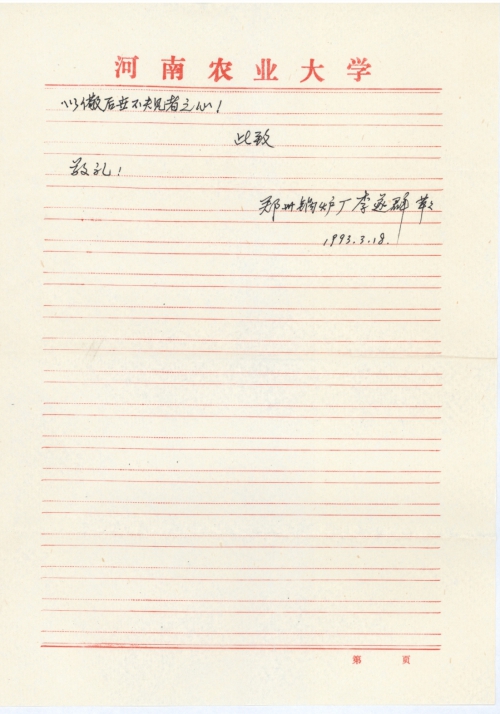 河南农业大学
以儆后世不
此致
敬礼！
郑州锅炉厂李
1993.3.18.
第 页